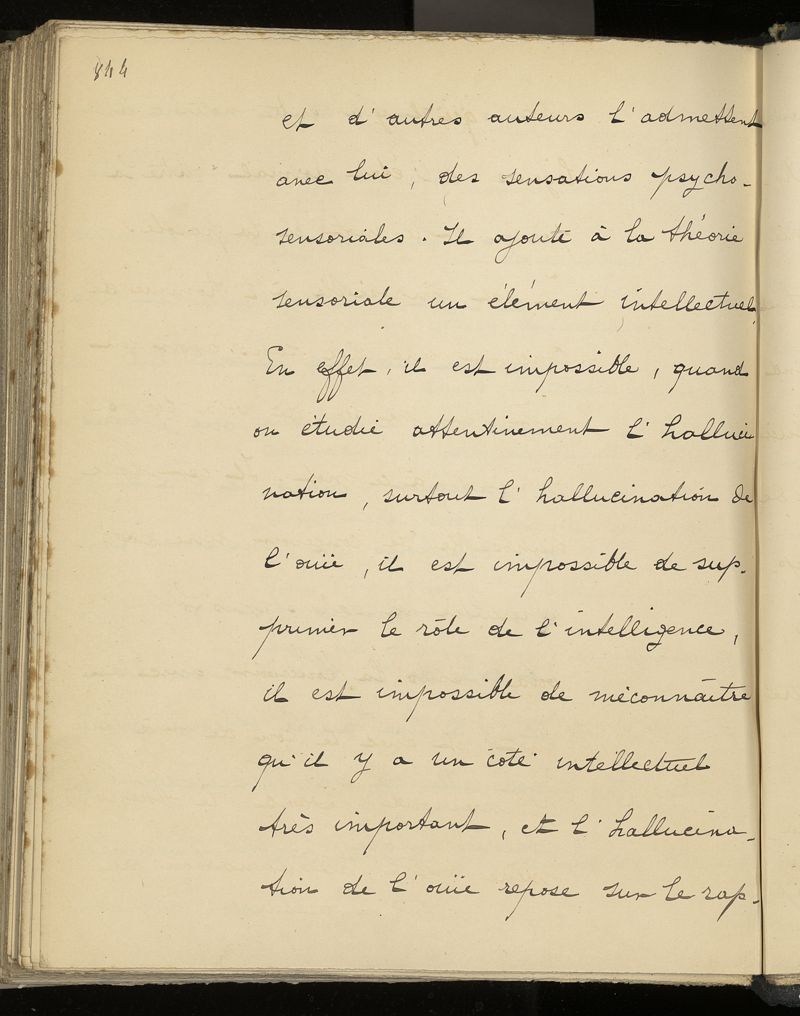 844
et d'autres auteurs l'admettent
avec lui, des sensations psycho-
sensoriales. Il ajoute à la théorie
sensoriale un élément intellectuel.
En effet, il est impossible, quand
on étudie attentivement l'halluci
nation, surtout l'hallucination de
l'ouïe, il est impossible de sup-
primer le rôle de l'intelligence,
il est impossible de méconnaître
qu'il y a un côté intellectuel
très important, et l'hallucina-
tion de l'ouïe repose sur le rap-